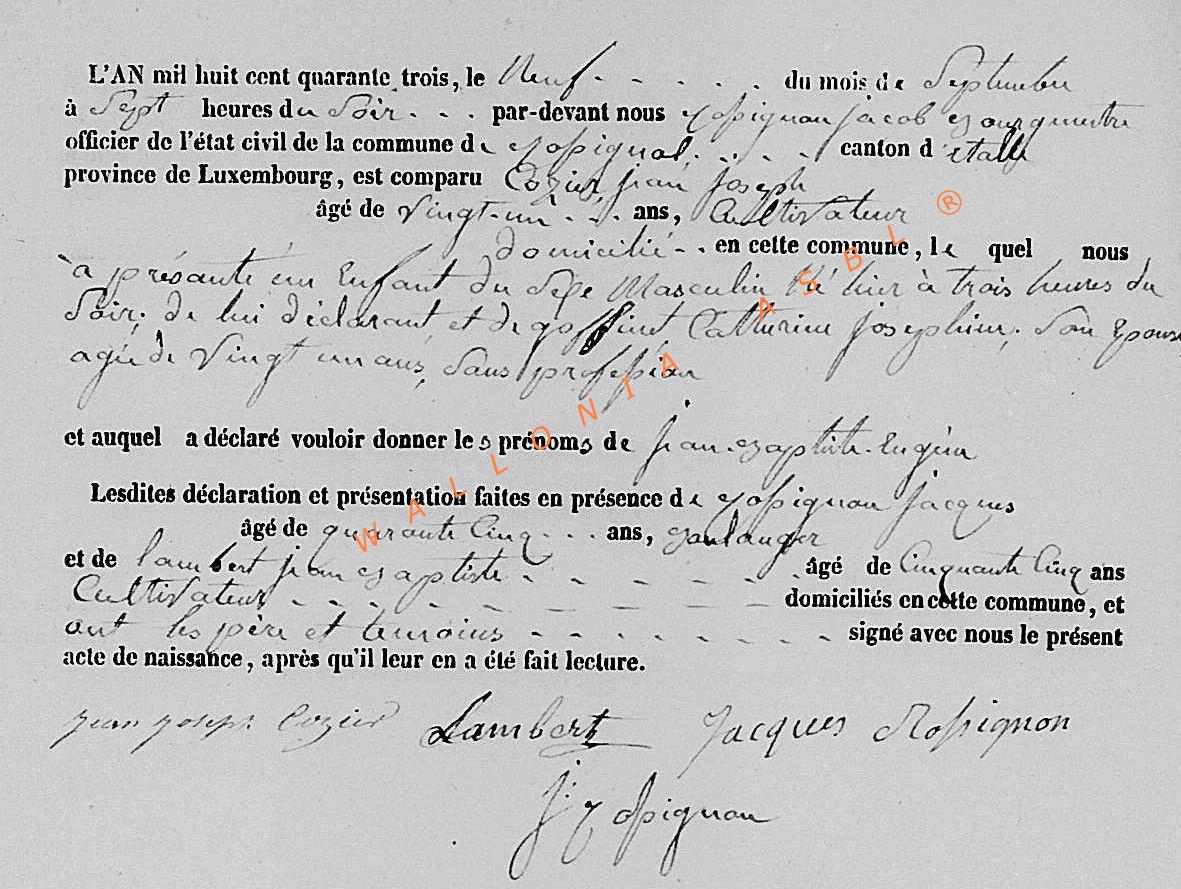 L'AN mil huit cent quarante trois, le Neuf - - - - - du mois de Septembre
à Sept heures du Soir - - - par-devant nous Rossignon jacob Bourgmestre
officier de l'état civil de la commune de Rossignol - - - - canton d'étalle
province de Luxembourg, est comparu Cozier jean joseph
âgé de Vingt-un - - - ans, Cultivateur
domicilié - - en cette commune, le quel nous
à présanté un Enfant du Sexe Masculin Né hier à trois heures du
Soir, de lui déclarant et de goffinet Catherine josephine, Son Epouse
agée de Vingt un ans, Sans profession
et auquel a déclaré vouloir donner les prénoms de jean-Baptiste-Eugène
Lesdites déclaration et présentation faites en présence de Rossignon jacques
âgé de quarante Cinq - - - ans, Boulanger
et de lambert jean Baptiste - - - - - - âgé de Cinquante Cinq ans
Cultivateur - - - - - - - - - domiciliés en cette commune, et
ont les père et temoins - - - - - - - - signé avec nous le présent
acte de naissance, après qu'il leur en a été fait lecture.
jean joseph Cozier Lambert Jacques Rossignon
J: Rossignon
WALLONIA ASBL ®